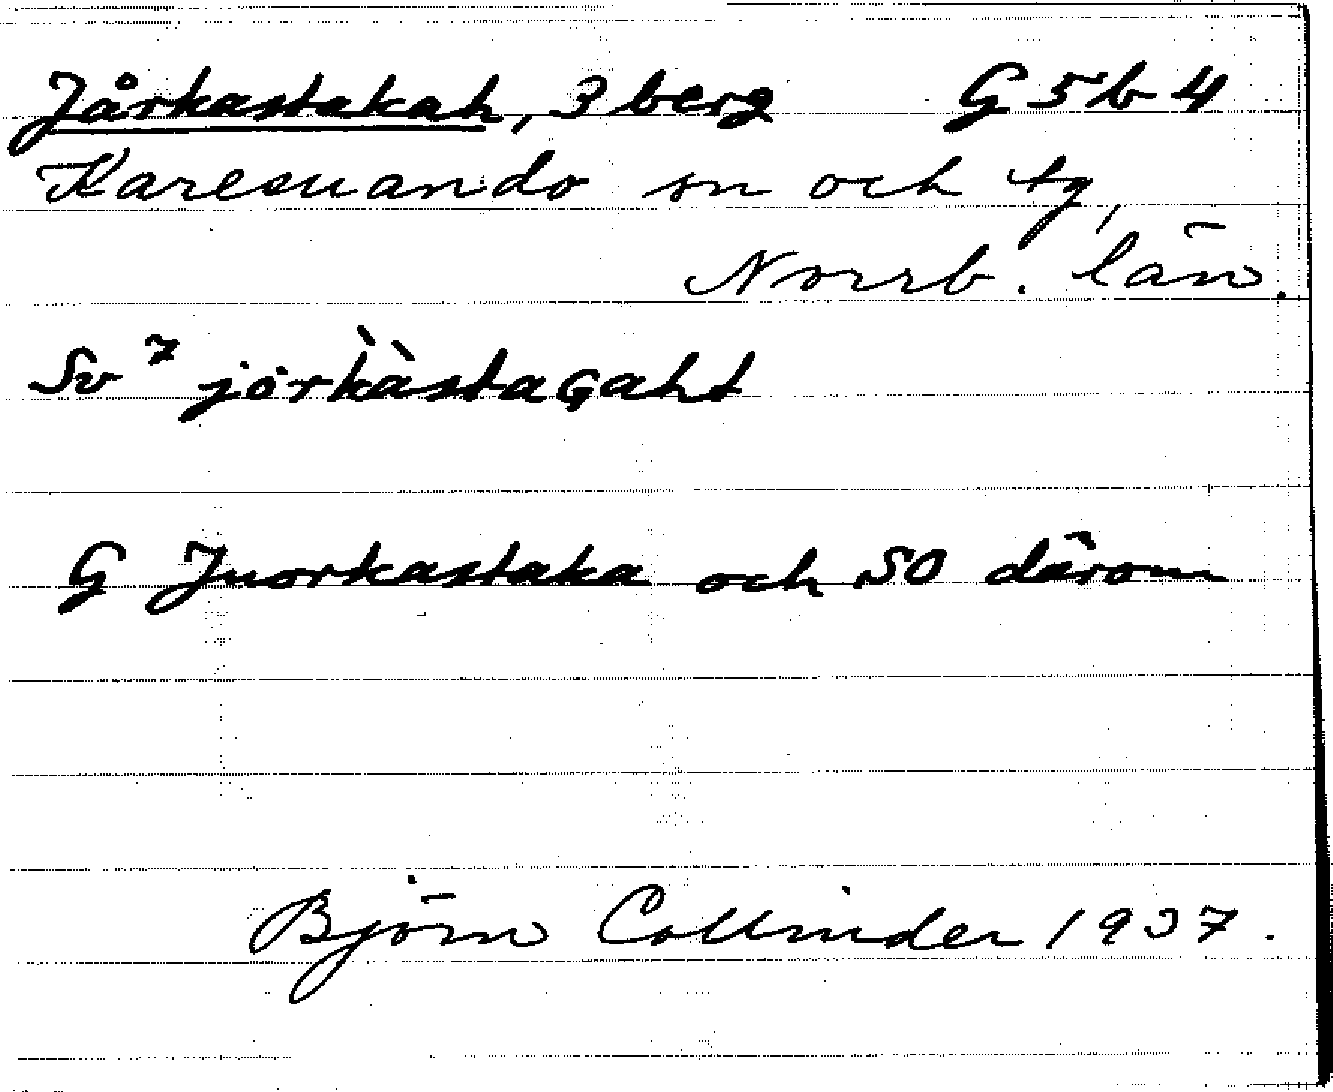 Jårkastakah, 3 berg G 5 b 4
Karesuando sn och tg,
Norrb. län.
Sv 7 jȯrk̀àstaGaht
G Juorkastaka och SO därom
Björn Collinder 1937.